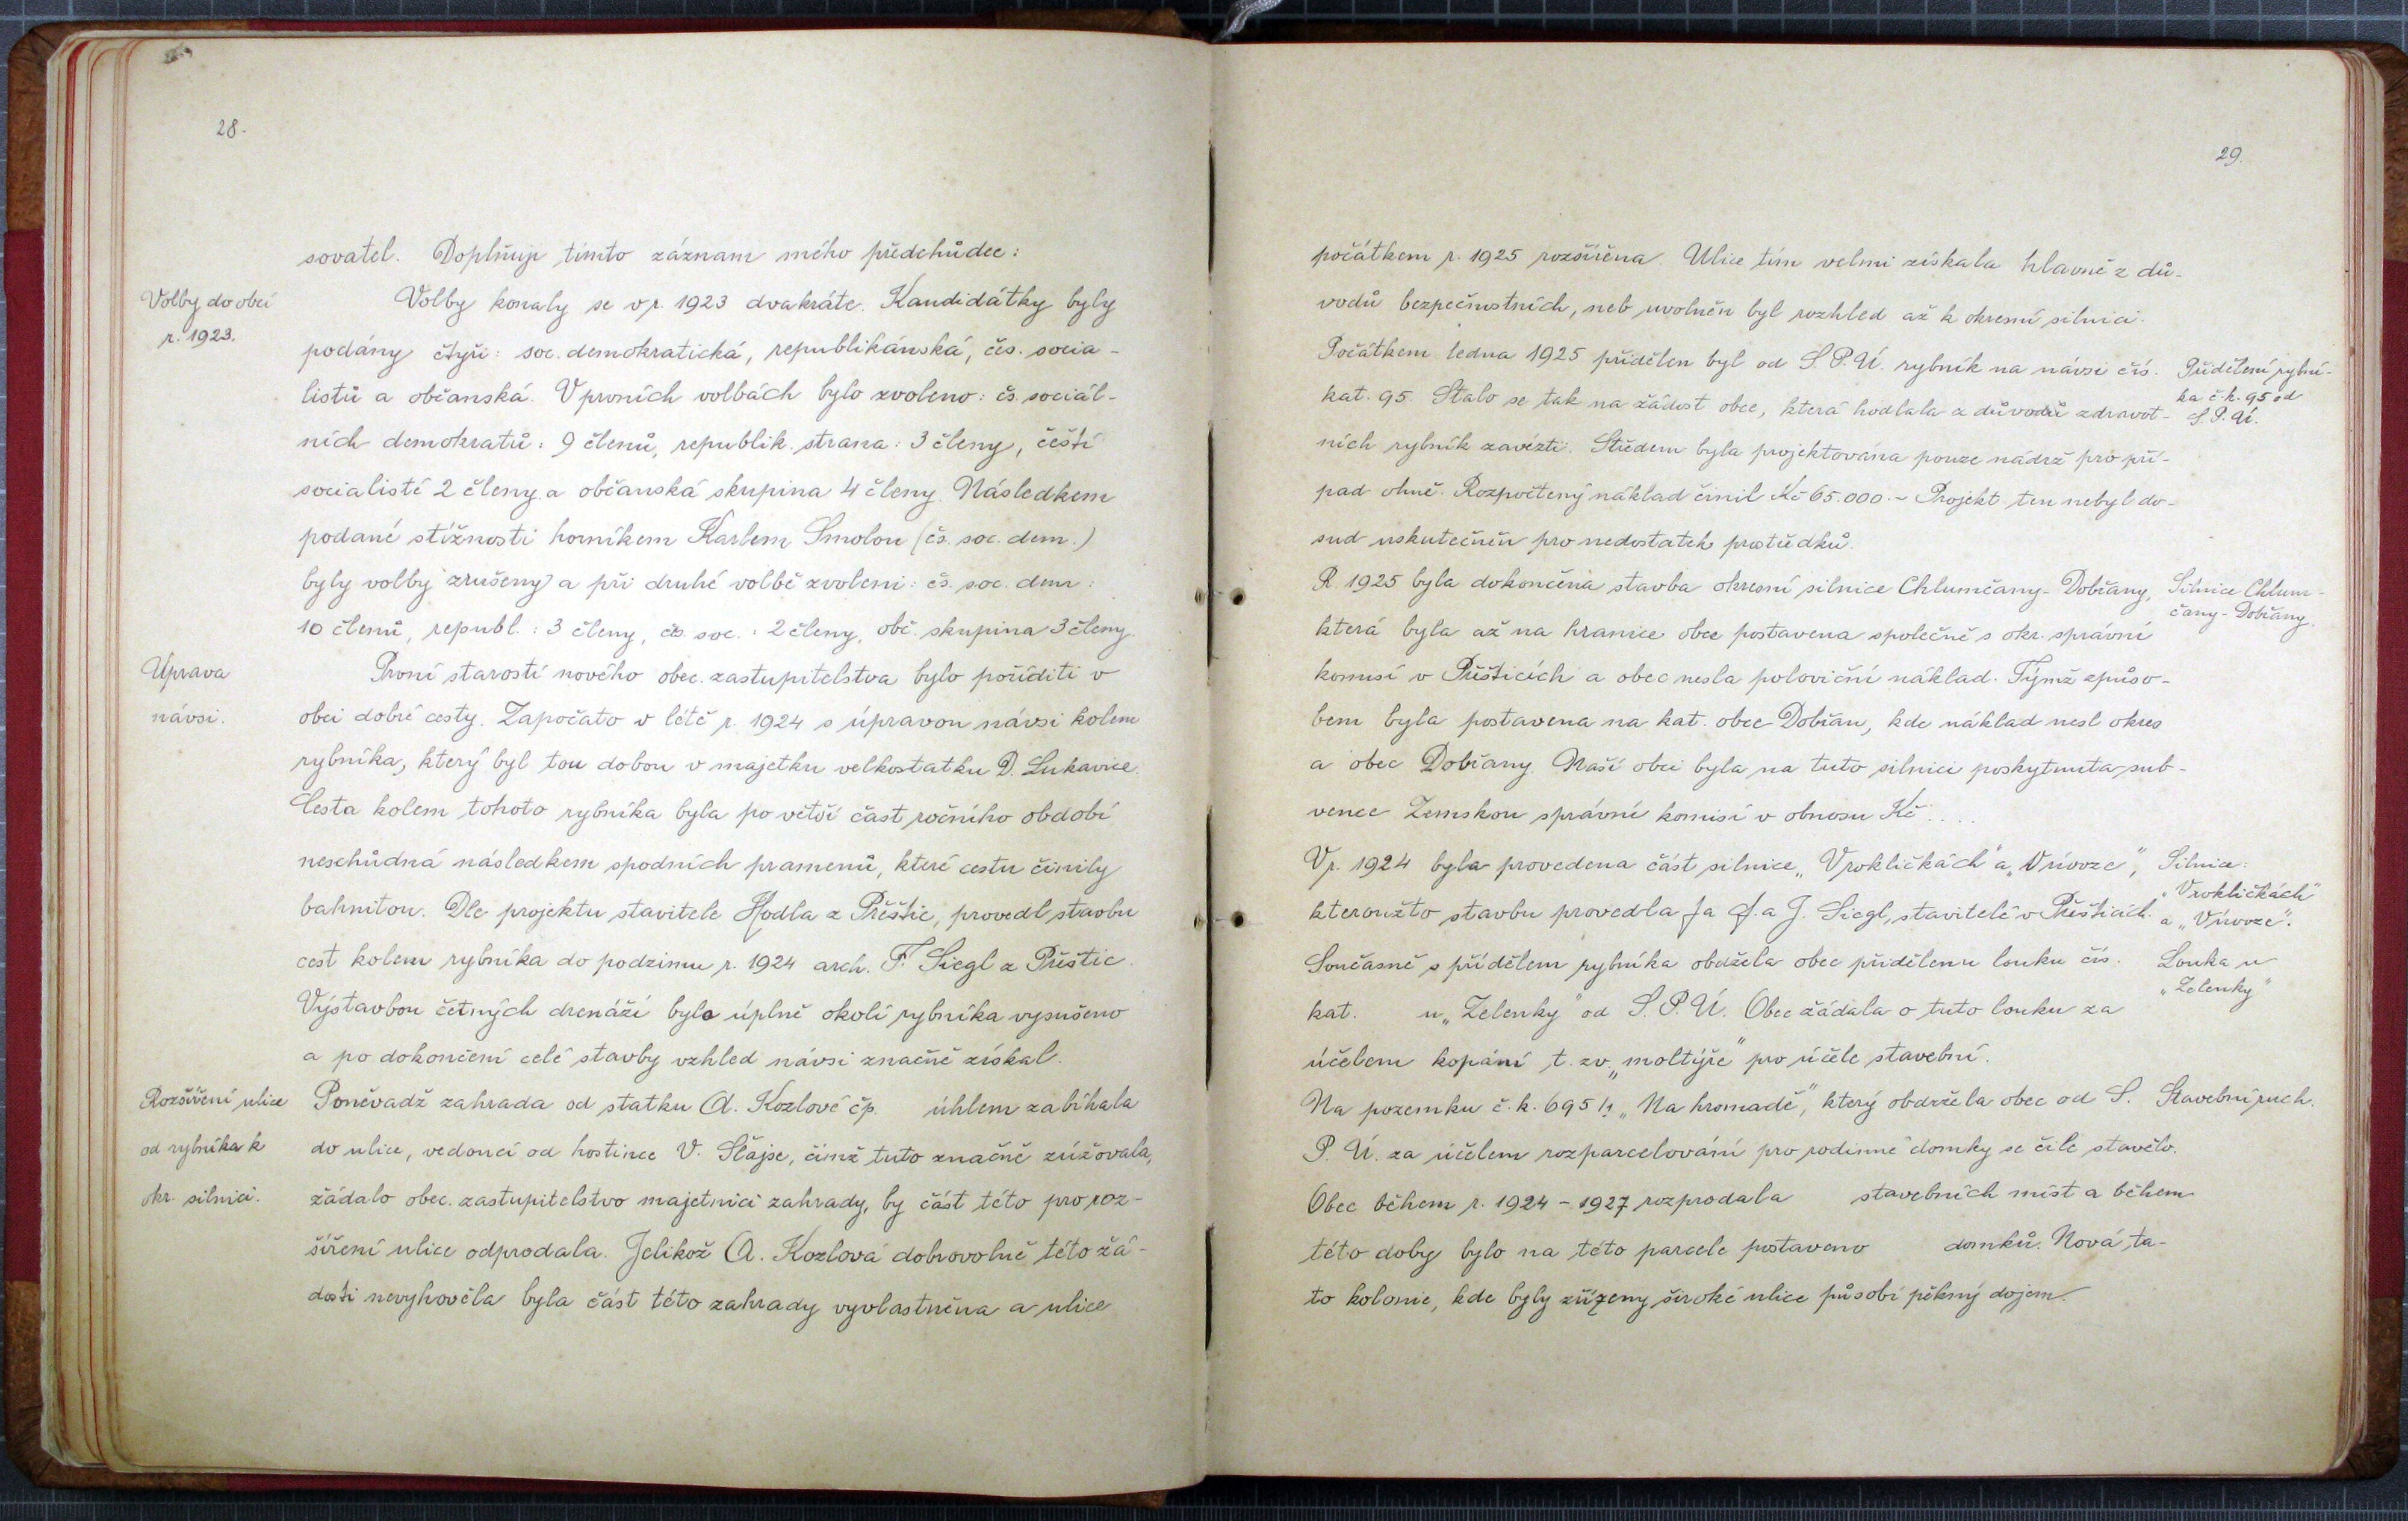 28.
sovatel. Doplňuji tímto záznam mého předchůdce:
Volby do obcí
r. 1923.
Volby konaly se v r. 1923 dvakráte. Kandidátky byly
podány čtyři: soc. demokratická, republikánská, čes. socia-
listů a občanská. V prvních volbách bylo zvoleno: čs. sociál-
ních demokratů: 9 členů, republik. strana: 3 členy, čeští
socialisté 2 členy a občanská skupina 4 členy. Následkem
podané stížnosti horníkem Karlem Smolou (čs. soc. dem.)
byly volby zrušeny a při druhé volbě zvoleni: čs. soc. dem:
10 členů, republ.: 3 členy, čs. soc.: 2 členy, obč. skupina 3 členy.
Úprava
návsi.
První starostí nového obec. zastupitelstva bylo poříditi v
obci dobré cesty. Započato v létě r. 1924 s úpravou návsi kolem
rybníka, který byl tou dobou v majetku velkostatku D. Lukavice.
Cesta kolem tohoto rybníka byla po větší část ročního období
neschůdná následkem spodních pramenů, které cestu činily
bahnitou. Dle projektu stavitele Hodla z Přeštic, provedl stavbu
cest kolem rybníka do podzimu r. 1924 arch. F. Siegl z Přeštic.
Výstavbou četných drenáží bylo úplně okolí rybníka vysušeno
a po dokončení celé stavby vzhled návsi značně získal.
Rozšíření ulice
od rybníka k
okr. silnici.
Poněvadž zahrada od statku A. Kozlové čp. úhlem zabíhala
do ulice, vedoucí od hostince V. Slajse, čímž tuto značně zúžovala,
žádalo obec. zastupitelstvo majetnici zahrady, by část této pro roz-
šíření ulice odprodala. Jelikož A. Kozlová dobrovolně této žá-
dosti nevyhověla byla část této zahrady vyvlastněna a ulice
29.
počátkem r. 1925 rozšířena. Ulice tím velmi získala hlavně z dů-
vodů bezpečnostních, neb uvolněn byl rozhled až k okresní silnici.
Počátkem ledna 1925 přidělen byl od S. P. Ú. rybník na návsi čís.
kat. 95. Stalo se tak na žádost obce, která hodlala z důvodů zdravot-
ních rybník zavézti. Středem byla projektována pouze nádrž pro pří-
pad ohně. Rozpočtený náklad činil Kč 65.000.- Projekt ten nebyl do-
sud uskutečněn pro nedostatek prostředků.
Přidělení rybní-
ka č. k. 95 od
S. P. Ú.
R. 1925 byla dokončena stavba okresní silnice Chlumčany-Dobřany,
která byla až na hranice obce postavena společně s okr. správní
komisí v Přešticích a obec nesla poloviční náklad. Týmž způso-
bem byla postavena na kat. obce Dobřan, kde náklad nesl okres
a obec Dobřany. Naší obci byla na tuto silnici poskytnuta sub-
vence Zemskou správní komisí v obnosu Kč ....
Silnice Chlum-
čany-Dobřany.
V r. 1924 byla provedena část silnice „V rokličkách" a „V úvoze",
kteroužto stavbu provedla fa F. a J. Siegl, stavitelé v Přešticích.
Silnice:
„V rokličkách"
a „V úvoze".
Současně s přídělem rybníka obdžela obec přidělenu louku čís.
kat. u „Zelenky" od S. P. Ú. Obec žádala o tuto louku za
účelem kopání t. zv. „moltýře" pro účele stavební.
Louka u
„Zelenky"
Na pozemku č. k. 695/1 „Na hromadě", který obdržela obec od S.
P. Ú. za účelem rozparcelování pro rodinné domky se čile stavělo.
Obec během r. 1924-1927 rozprodala stavebních míst a během
této doby bylo na této parcele postaveno domků. Nová ta-
to kolonie, kde byly zřízeny široké ulice působí pěkný dojem.
Stavební ruch.